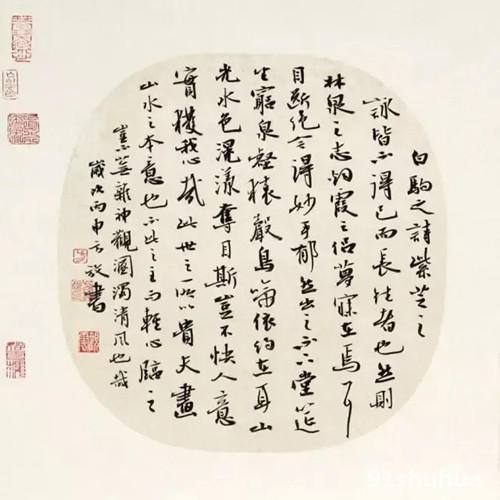 白駒之詩紫芝之
詠皆不得已而長往者也然則
林泉之志烟霞之侶夢寐在焉耳
目斷絕今得妙手郁然出之不下堂筵
坐窮泉壑猿聲鳥啼依約在耳山
光水色滉漾奪目斯豈不快人意
實獲我心哉此世之所以貴夫畫
山水之本意也不此之主而輕心臨之
蕪雜神觀溷濁清風也哉
歲次丙申 放書
91shuhua